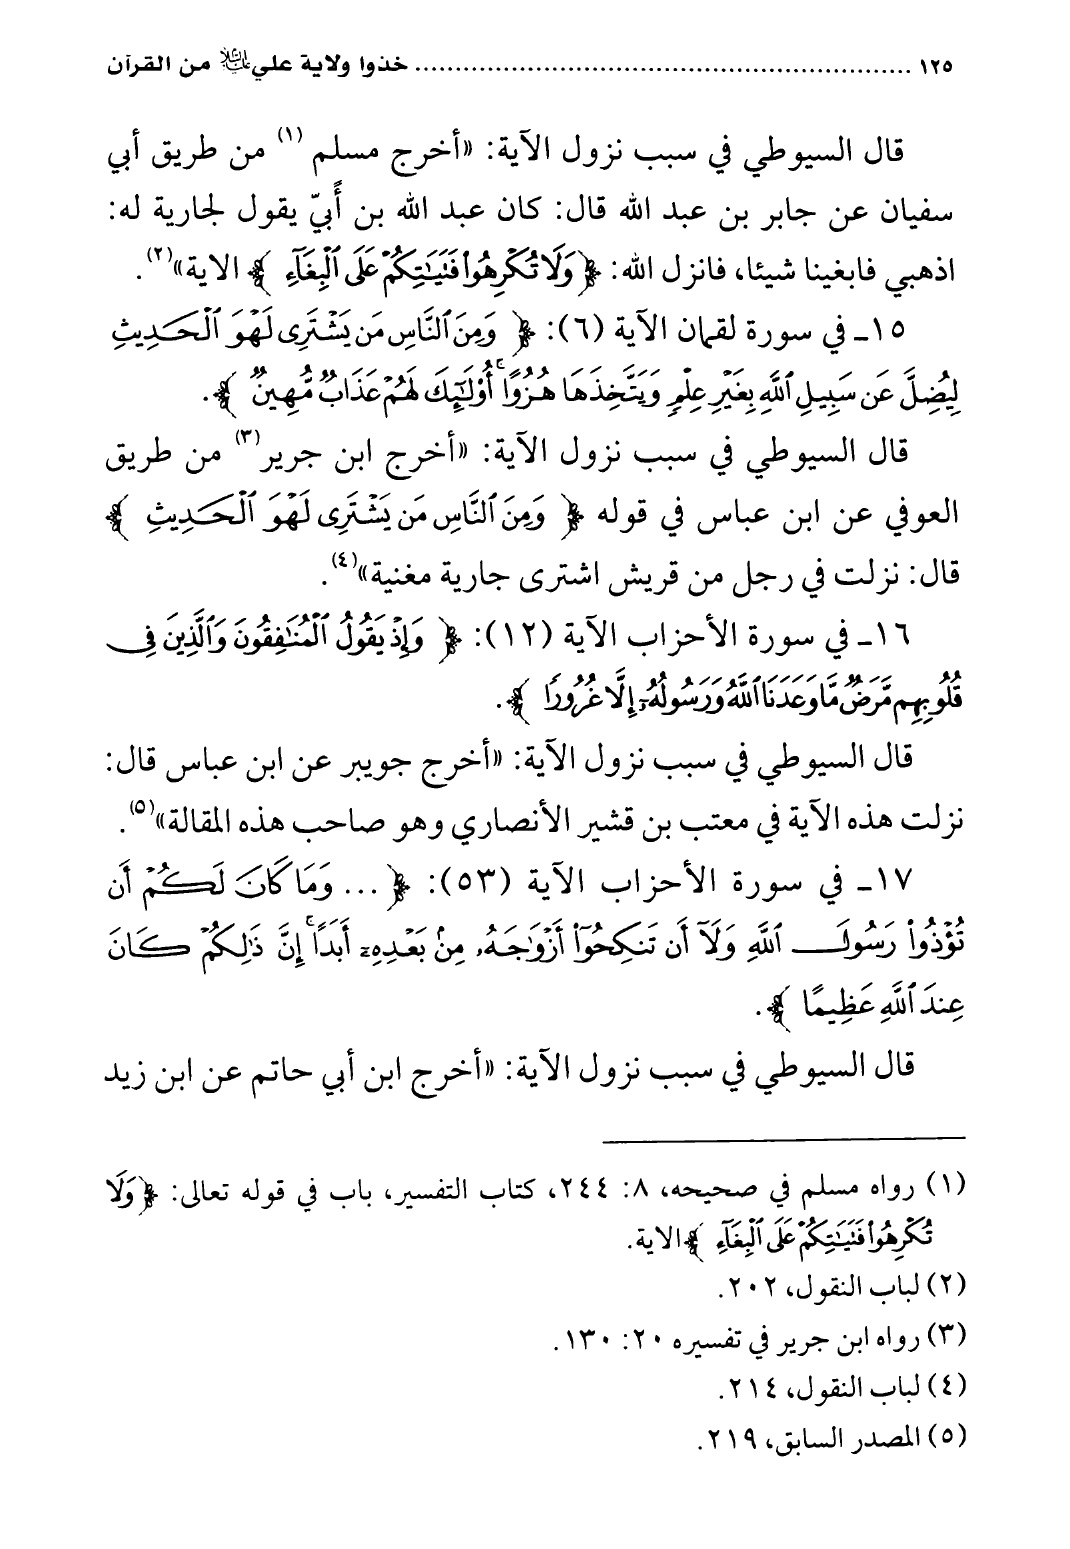 ١٢٥ ............................................................... خذوا ولاية علي عليه السلام من القرآن
قال السيوطي في سبب نزول الآية: «أخرج مسلم (١) من طريق أبي
سفيان عن جابر بن عبد الله قال: كان عبد الله بن أُبيّ يقول لجارية له:
اذهبي فابغينا شيئا، فانزل الله: ﴿وَلَا تُكْرِهُواْ فَتَيَٰتِكُمْ عَلَى ٱلْبِغَآءِ﴾ الاية»(٢).
١٥ـ في سورة لقمان الآية (٦): ﴿وَمِنَ ٱلنَّاسِ مَن يَشْتَرِى لَهْوَ ٱلْحَدِيثِ
لِيُضِلَّ عَن سَبِيلِ ٱللَّهِ بِغَيْرِ عِلْمٍ وَيَتَّخِذَهَا هُزُوًا ۚ أُوْلَٰٓئِكَ لَهُمْ عَذَابٌ مُّهِينٌ﴾.
قال السيوطي في سبب نزول الآية: «أخرج ابن جرير(٣) من طريق
العوفي عن ابن عباس في قوله ﴿وَمِنَ ٱلنَّاسِ مَن يَشْتَرِى لَهْوَ ٱلْحَدِيثِ﴾
قال: نزلت في رجل من قريش اشترى جارية مغنية»(٤).
١٦ـ في سورة الأحزاب الآية (١٢): ﴿وَإِذْ يَقُولُ ٱلْمُنَٰفِقُونَ وَٱلَّذِينَ فِى
قُلُوبِهِم مَّرَضٌ مَّا وَعَدَنَا ٱللَّهُ وَرَسُولُهُۥٓ إِلَّا غُرُورًا﴾.
قال السيوطي في سبب نزول الآية: «أخرج جويبر عن ابن عباس قال:
نزلت هذه الآية في معتب بن قشير الأنصاري وهو صاحب هذه المقالة»(٥).
١٧ـ في سورة الأحزاب الآية (٥٣): ﴿... وَمَا كَانَ لَكُمْ أَن
تُؤْذُواْ رَسُولَ ٱللَّهِ وَلَآ أَن تَنكِحُوٓاْ أَزْوَٰجَهُۥ مِنۢ بَعْدِهِۦٓ أَبَدًا ۚ إِنَّ ذَٰلِكُمْ كَانَ
عِندَ ٱللَّهِ عَظِيمًا﴾.
قال السيوطي في سبب نزول الآية: «أخرج ابن أبي حاتم عن ابن زيد
(١) رواه مسلم في صحيحه، ٨: ٢٤٤، كتاب التفسير، باب في قوله تعالى: ﴿وَلَا
تُكْرِهُواْ فَتَيَٰتِكُمْ عَلَى ٱلْبِغَآءِ﴾ الاية.
(٢) لباب النقول، ٢٠٢.
(٣) رواه ابن جرير في تفسيره ٢٠: ١٣٠.
(٤) لباب النقول، ٢١٤.
(٥) المصدر السابق، ٢١٩.